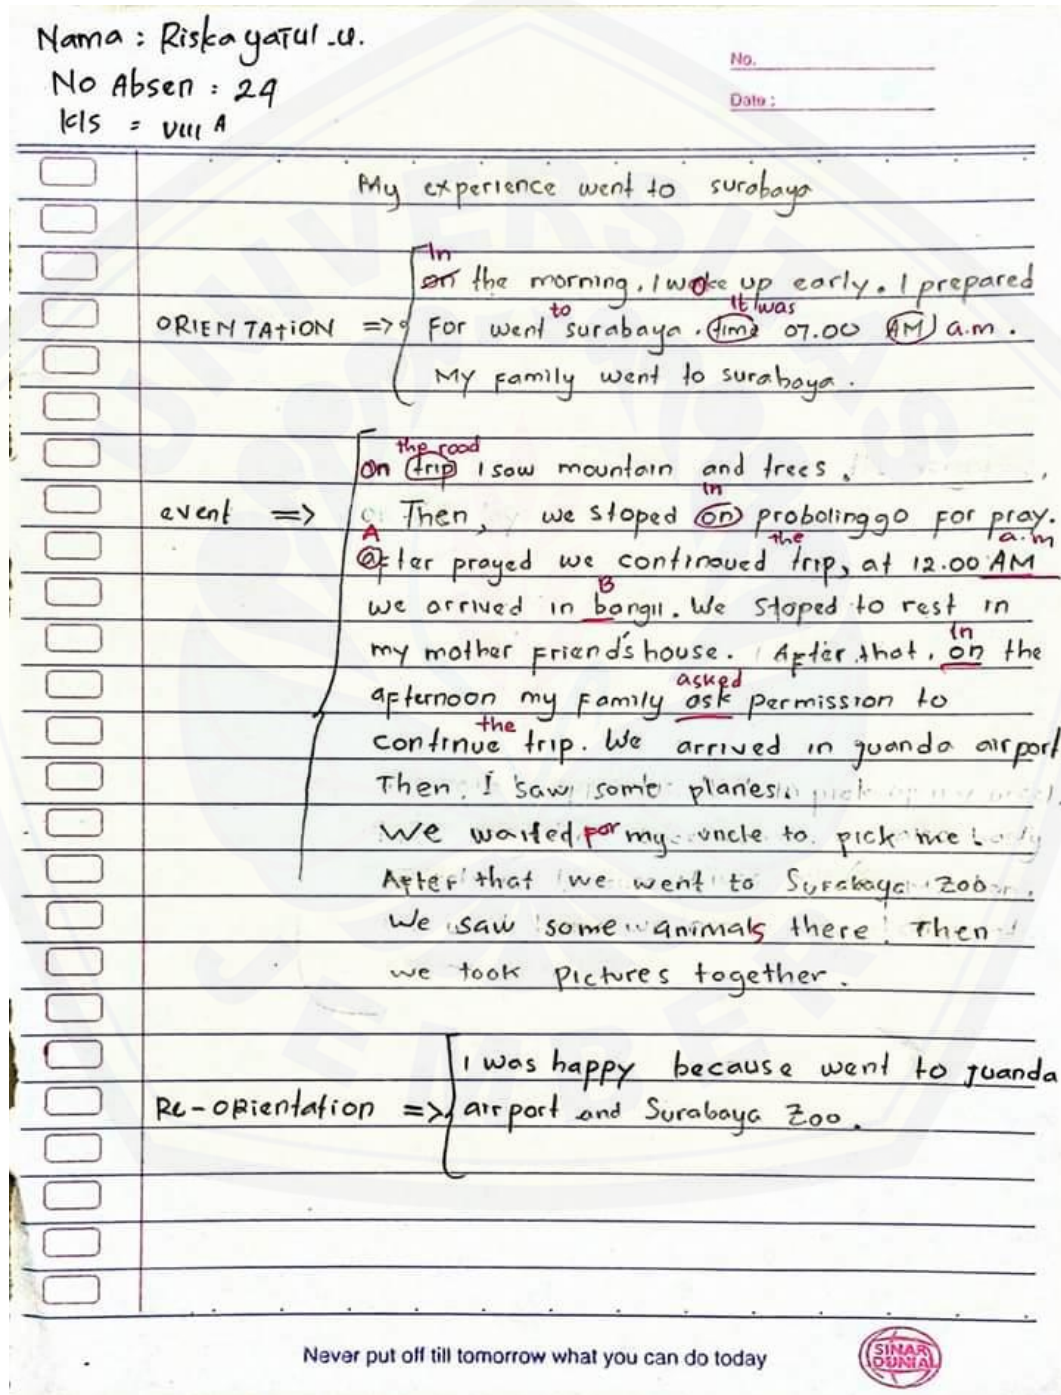 Nama : Riskayatul .u.
No Absen : 24
kls = VIII A
No.
Date :
My experience went to surabaya
In
on the morning, I woke up early. I prepared
to It was
For went surabaya. time 07.00 AM a.m.
ORIENTATION =>
My Family went to surabaya.
the road
On trip I saw mountain and trees.
in
event => Then, we stoped on probolinggo For pray.
A the a.m
after prayed we continoued trip, at 12.00 AM
B
we arrived in bangil. We stoped to rest in
in
my mother Friend's house. After that, on the
asked
afternoon my Family ask permission to
the
continue trip. We arrived in juanda airport
Then. I saw some planes.
We waited for my uncle to pick me
After that we went to Surabaya Zoo.
We saw some animals there. Then
we took pictures together.
I was happy because went to juanda
Re-ORientation => airport and Surabaya Zoo.
Never put off till tomorrow what you can do today
SINAR
DUNIA
UNIVERSITAS
JEMBER